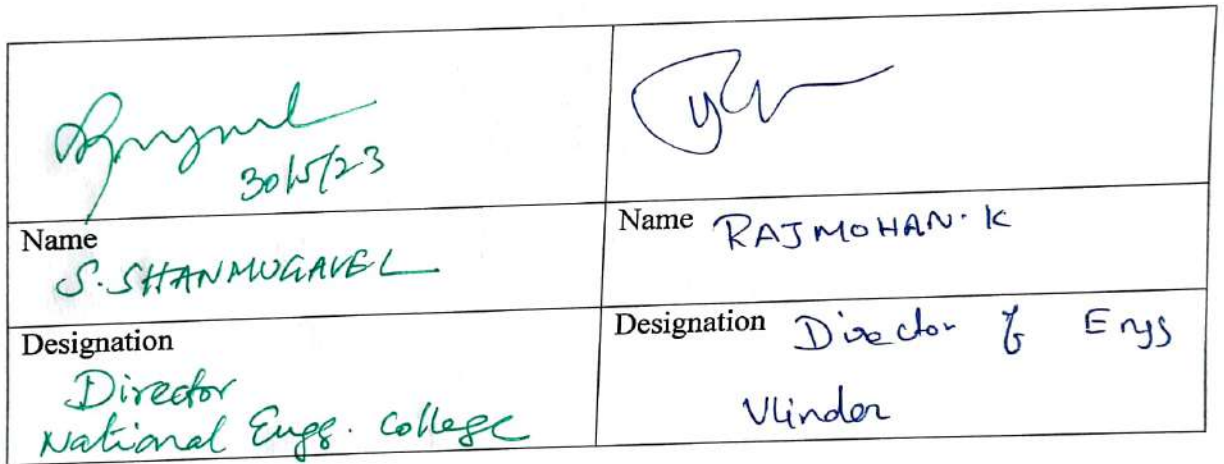 30/5/23
Name
S. SHANMUGAVEL
Name RAJMOHAN. K
Designation
Director
National Engg. College
Designation Director of Engg
Vlinder